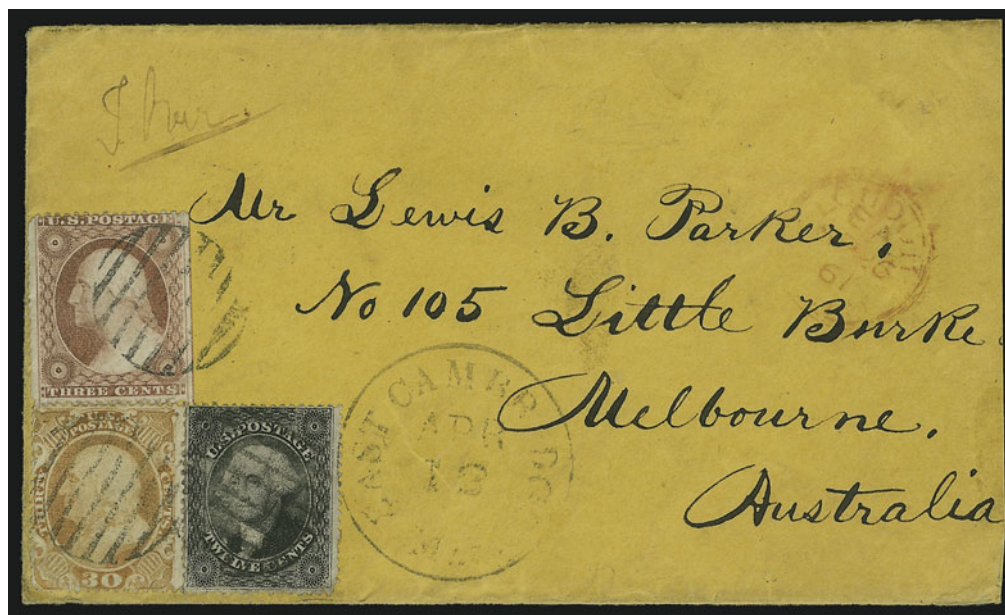 Mr Lewis B. Parker,
No 105 Little Burke
Melbourne,
Australia
U.S. POSTAGE
THREE CENTS
U.S. POSTAGE
THIRTY CENTS
30
U.S. POSTAGE
TWELVE CENTS
EAST CAMBRIDGE
APR
13